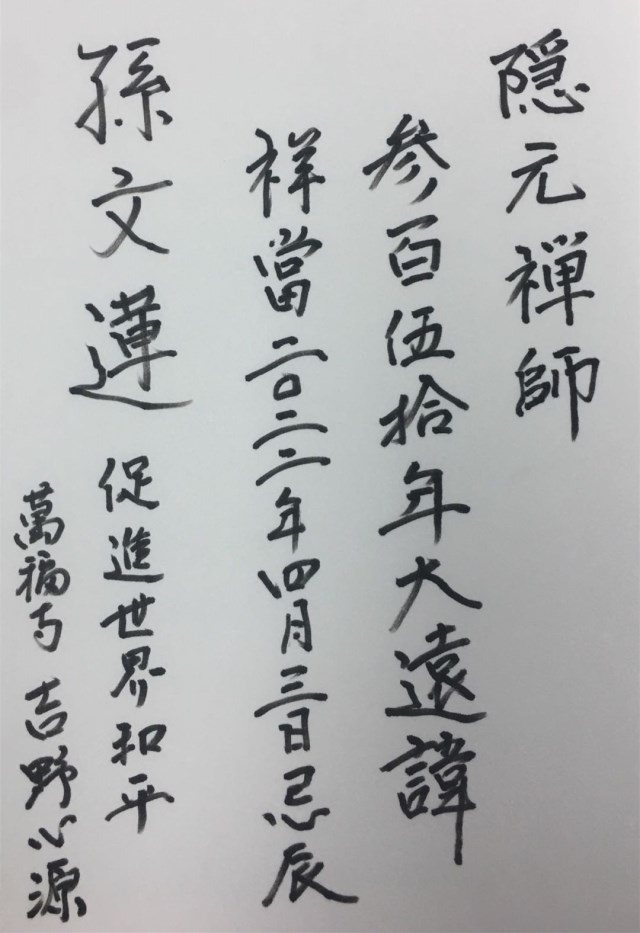 隠元禅師
参百伍拾年大遠諱
祥當二〇二二年四月三日忌辰
孫文蓮 促進世界和平
萬福寺 吉野心源